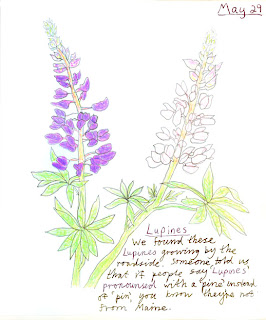 May 29
Lupines
We found these
Lupines growing by the
roadside. Someone told us
that if people say 'Lupines'
pronounced with a 'pine' instead
of 'pin', you know they're not
from Maine.